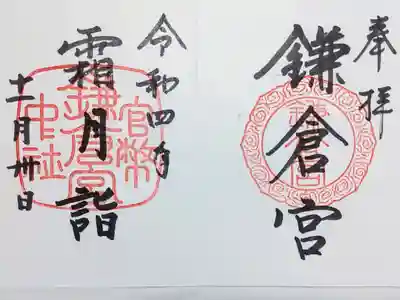 奉拝
鎌倉宮
令和四年
霜月詣
十一月卅日
鎌倉宮
官幣
鎌倉宮
中社